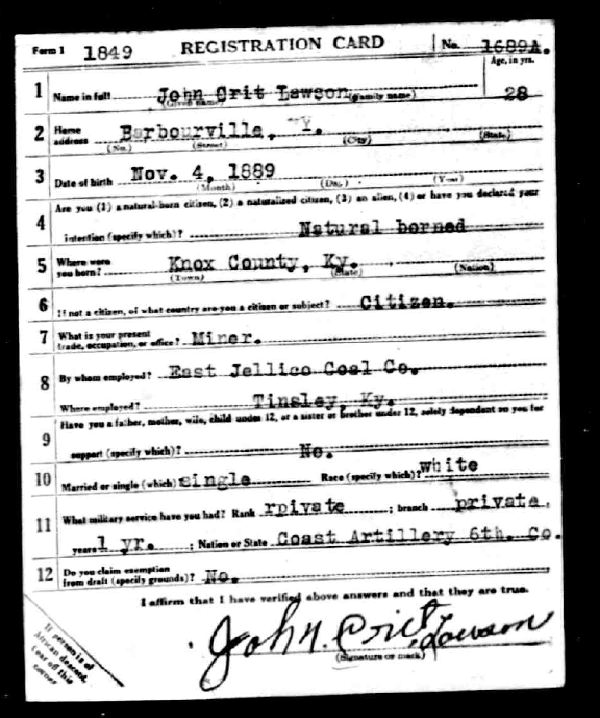 Form 1 1849 REGISTRATION CARD No. 1689A.
Age, in yrs.
1 Name in full John Crit Lawson 28
(Given name) (Family name)
2 Home address Barbourville, Y.
(No.) (Street) (City) (State)
3 Date of birth Nov. 4, 1889
(Month) (Day) (Year)
4 Are you (1) a natural-born citizen, (2) a naturalized citizen, (3) an alien, (4) or have you declared your
intention (specify which)? Natural borned
5 Where were you born? Knox County, Ky.
(Town) (State) (Nation)
6 If not a citizen, of what country are you a citizen or subject? Citizen.
7 What is your present trade, occupation, or office? Miner.
8 By whom employed? East Jellico Coal Co.
Where employed? Tinsley, Ky.
9 Have you a father, mother, wife, child under 12, or a sister or brother under 12, solely dependent on you for
support (specify which)? No.
10 Married or single (which) single Race (specify which)? white
11 What military service have you had? Rank rpivate ; branch private.
years 1 yr. ; Nation or State Coast Artillery 6th. Co.
12 Do you claim exemption from draft (specify grounds)? No.
I affirm that I have verified above answers and that they are true.
John. Crit, Lawson
(Signature or mark)
If person is of
African descent,
tear off this
corner